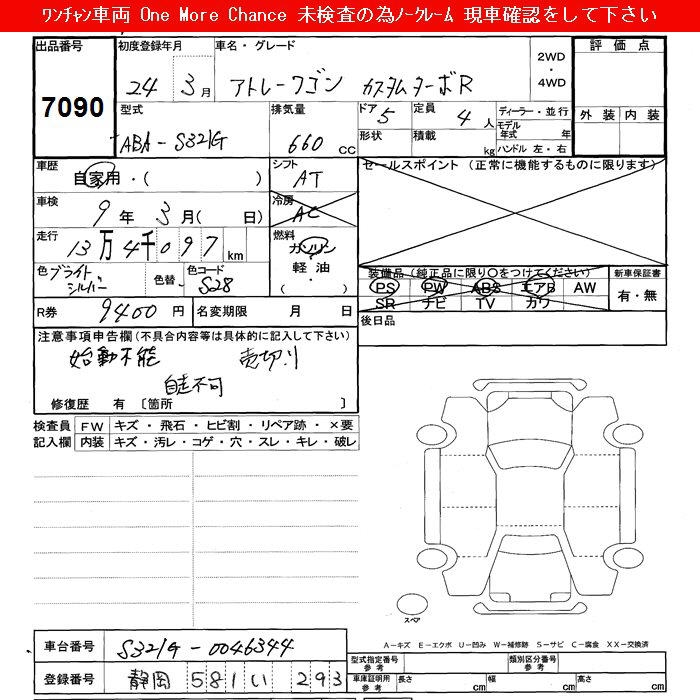 ﾜﾝﾁｬﾝ車両 One More Chance 未検査の為ﾉｰｸﾚｰﾑ 現車確認をして下さい
出品番号 初度登録年月 車名・グレード 2WD ・ 4WD 評価点
7090 24年 3月 アトレーワゴン カスタムターボR
型式 排気量 ドア 5 定員 4人 ディーラー・並行 外装 内装
ABA-S321G 660cc 形状 積載 kg モデル年式 年
ハンドル 左・右
車歴 自家用・( ) シフト AT セールスポイント (正常に機能するものに限ります)
車検 9年 3月( 日) 冷房 AC
走行 13万4千097km 燃料 ガソリン
軽油・( )
色 ブライトシルバー 色替 色コード S28 装備品 (純正品に限り○をつけてください) 新車保証書
PS PW ABS エアB AW 有・無
SR ナビ TV カワ
R券 9400円 名変期限 月 日 後日品
注意事項申告欄 (不具合内容等は具体的に記入して下さい)
始動不能 売切り
自走不可
修復歴 有 [箇所 ]
検査員 FW キズ・飛石・ヒビ割・リペア跡・×要
記入欄 内装 キズ・汚レ・コゲ・穴・スレ・キレ・破レ
スペア
A-キズ E-エクボ U-凹み W-補修跡 S-サビ C-腐食 XX-交換済
車台番号 S321G-0046344
型式指定番号 参考 類別区分番号 参考
登録番号 静岡 581 い 293
車庫証明用 参考 長さ cm 幅 cm 高さ cm